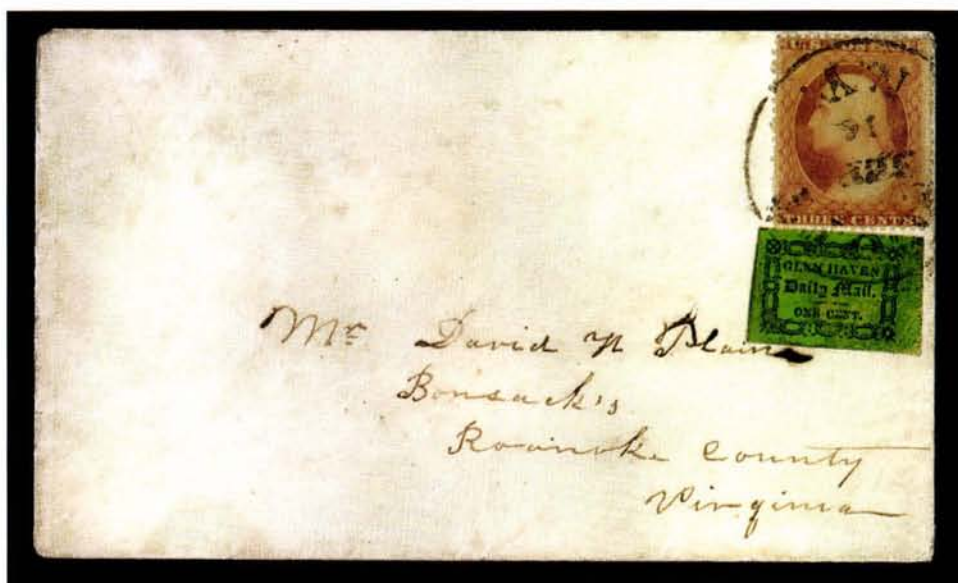 N.Y.
16
THREE CENTS
GLEN HAVEN
Daily Mail.
ONE CENT.
Mr. David N Plaine
Bonsack's
Roanoke County
Virginia